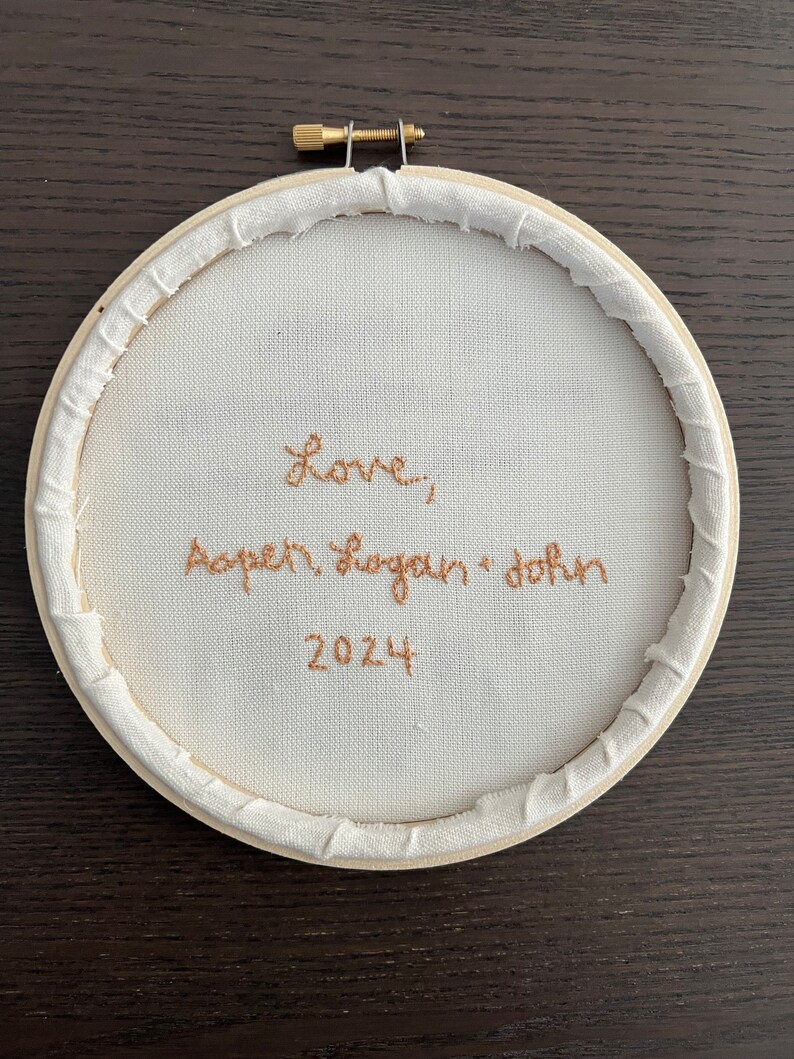 Love,
Aspen, Logan + John
2024